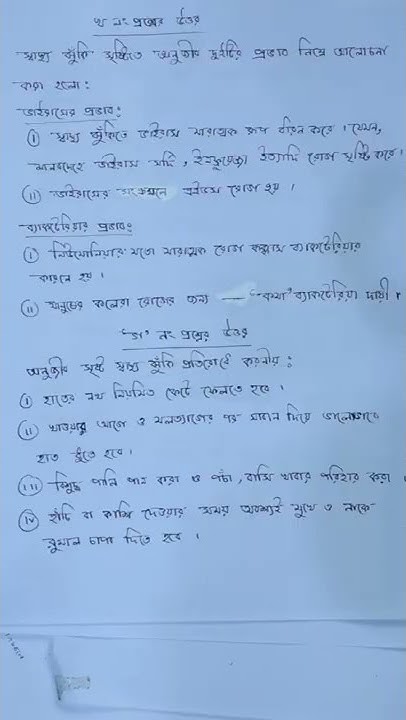 খ নং প্রশ্নের উত্তর
স্বাস্থ্য ঝুঁকি সৃষ্টিতে অনুজীব দুইটির প্রভাব নিম্নে আলোচনা
করা হলো:
ভাইরাসের প্রভাব:
i স্বাস্থ্য ঝুঁকিতে ভাইরাস মারাত্মক রূপ ধারন করে। যেমন,
মানবদেহে ভাইরাস সর্দি, ইনফ্লুয়েঞ্জা ইত্যাদি রোগ সৃষ্টি করে।
ii ভাইরাসের সংক্রমনে এইডস রোগ হয়।
ব্যাকটেরিয়ার প্রভাব:
i নিউমোনিয়ার মতো মারাত্মক রোগ ব্যাকটেরিয়ার
কারনে হয়।
ii মানুষের কলেরা রোগের জন্য — "কমা" ব্যাকটেরিয়া দায়ী।
নং প্রশ্নের উত্তর
অনুজীব সৃষ্ট স্বাস্থ্য ঝুঁকি প্রতিরোধে করনীয়:
i হাতের নখ নিয়মিত কেটে ফেলতে হবে।
ii খাওয়ার আগে ও মলত্যাগের পর সাবান দিয়ে ভালোভাবে
হাত ধুঁতে হবে।
iii বিশুদ্ধ পানি পান করা ও পঁচা, বাসি খাবার পরিহার করা।
iv হাঁচি বা কাশি দেওয়ার সময় অবশ্যই মুখে ও নাকে
রুমাল চাপা দিতে হবে।